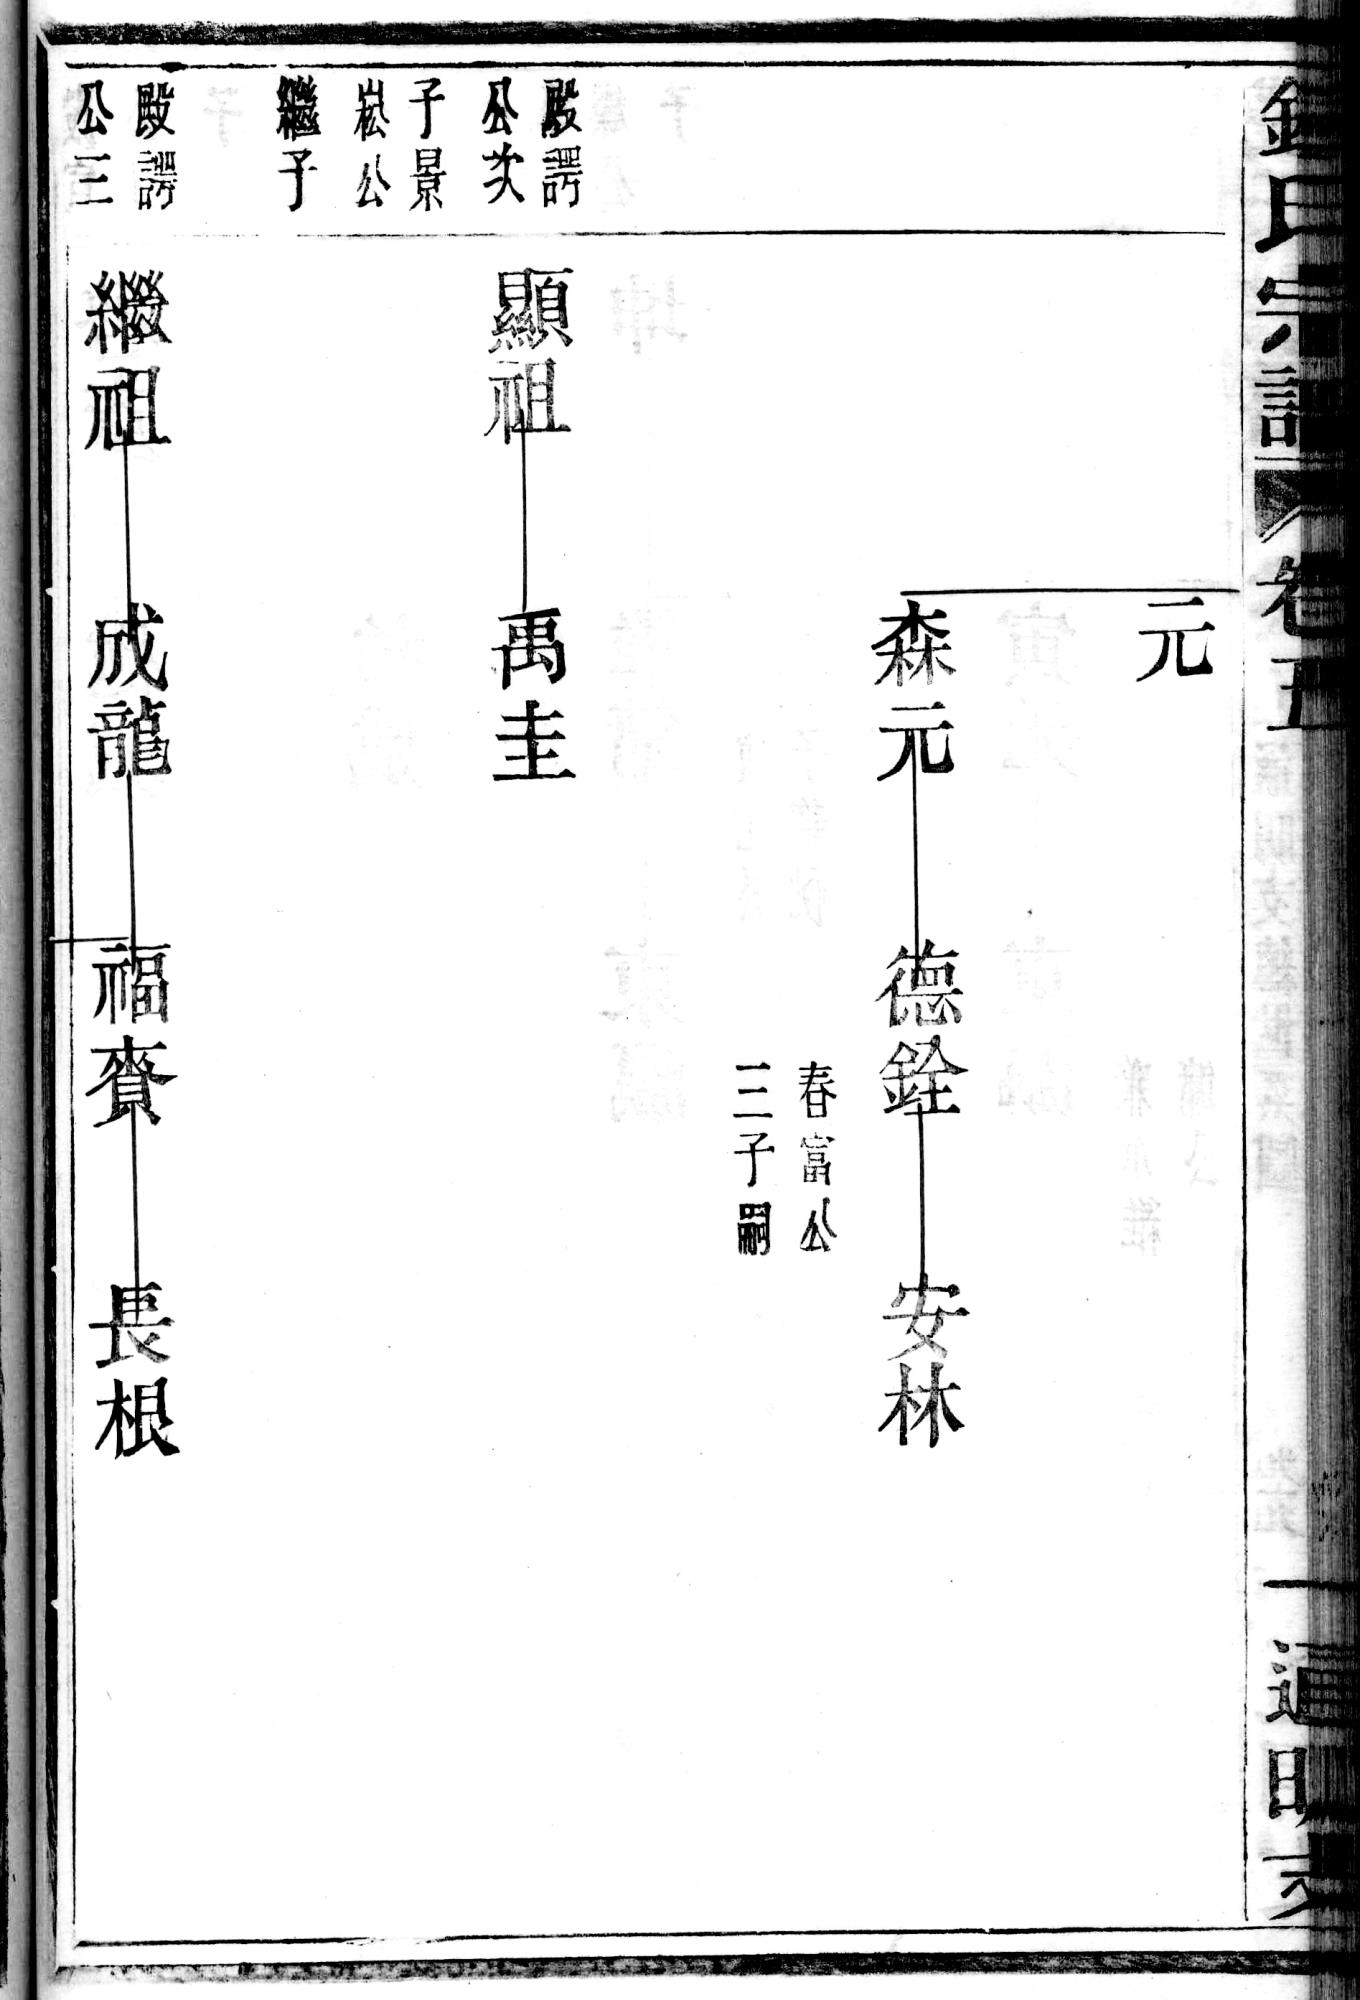 氏宗譜
卷五
一
通明支
元
森元
德銓
春富公
三子嗣
安林
殿諤
公次
子景
崧公
繼子
顯祖
禹圭
殿諤
公三
繼祖
成龍
福賚
長根